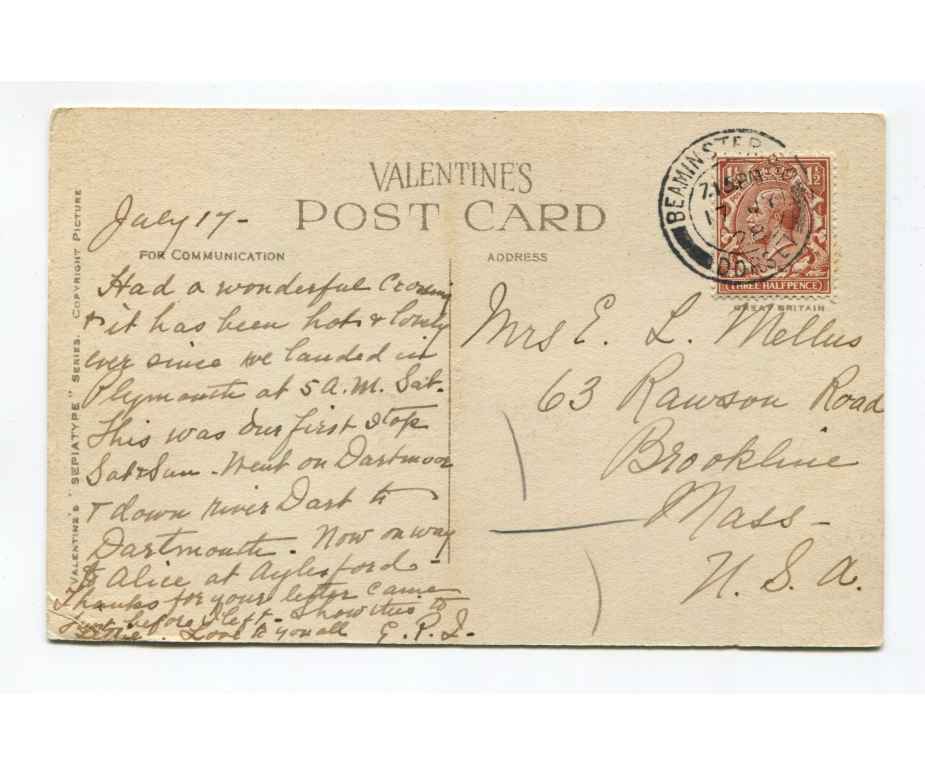 VALENTINE'S
POST CARD
FOR COMMUNICATION
ADDRESS
VALENTINE'S "SEPIATYPE" SERIES. COPYRIGHT PICTURE
July 17-
Had a wonderful Crossing
& it has been hot & lovely
ever since we landed in
Plymouth at 5 A.M. Sat.
This was our first stop
Sat & Sun. Went on Dartmoor
& down river Dart to
Dartmouth. Now on way
to Alice at Aylesford.
Thanks for your letter came
just before I left. Show this to
Love to you all E. P. I.
BEAMINSTER
7.15PM
17 JY
DORSET
1½
1½
THREE HALFPENCE
GREAT BRITAIN
Mrs E. L. Mellus
63 Rawson Road
Brookline
Mass-
U. S. A.